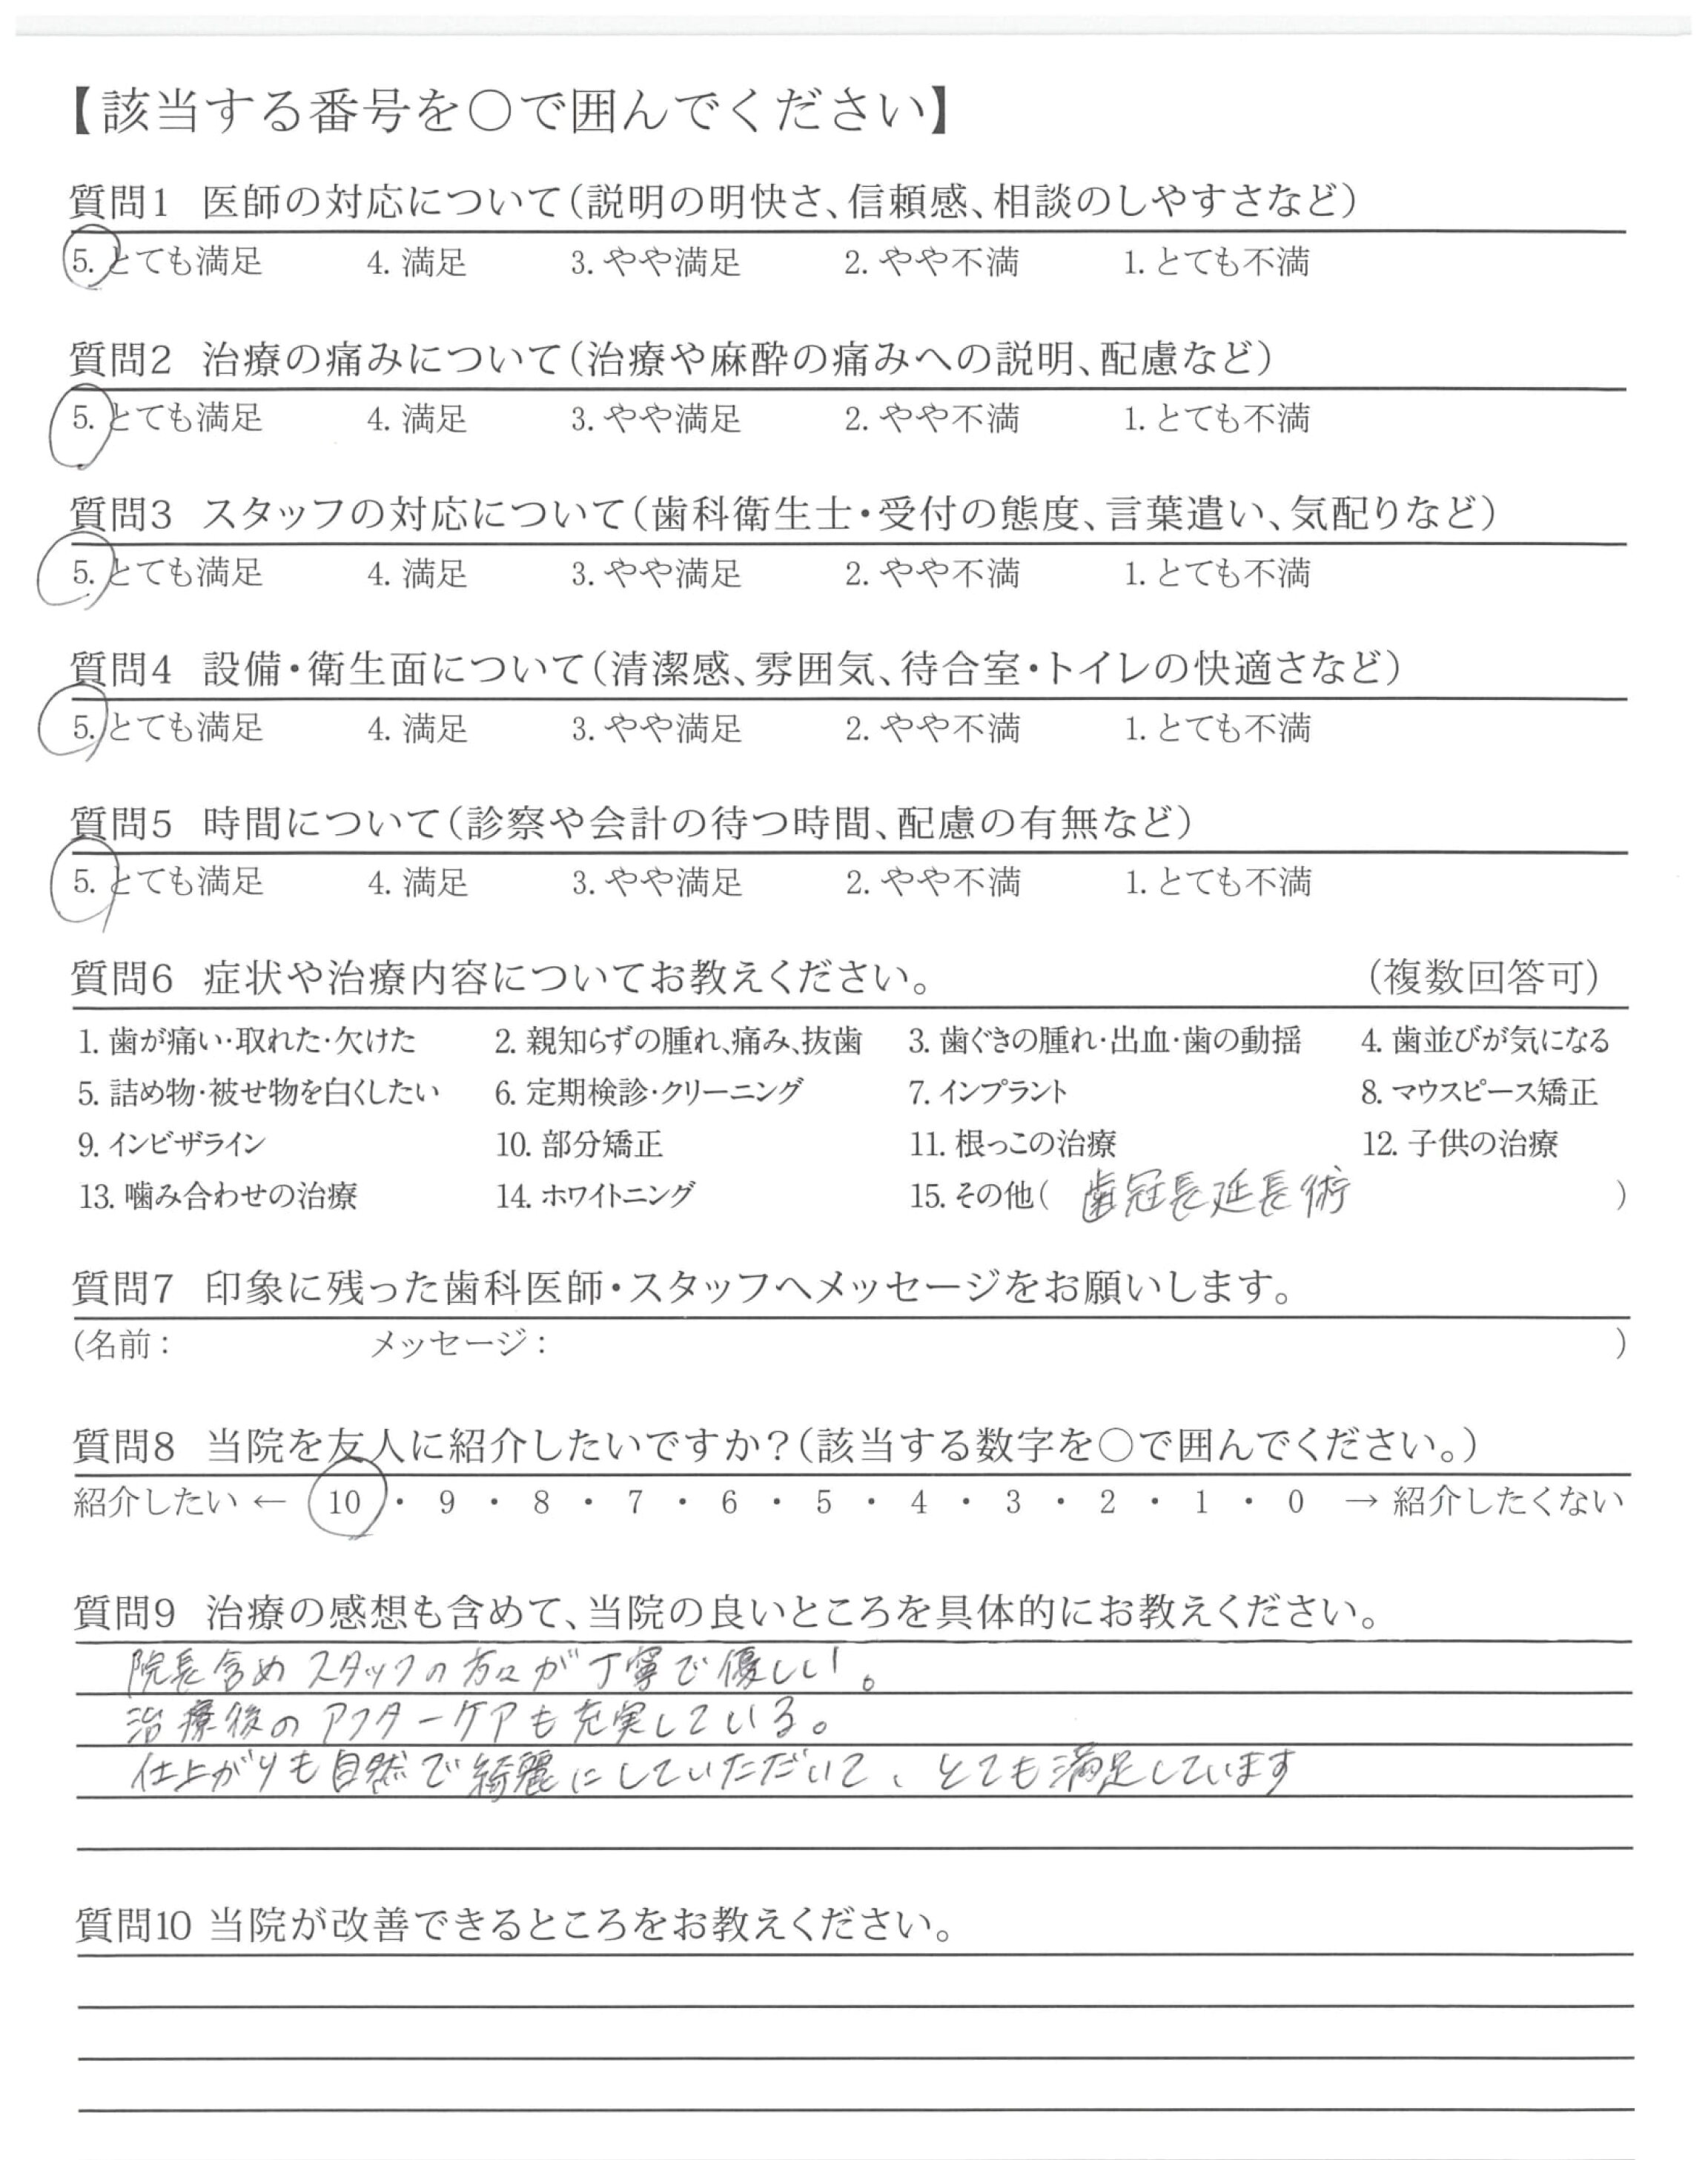 【該当する番号を○で囲んでください】
質問1 医師の対応について(説明の明快さ、信頼感、相談のしやすさなど)
5. とても満足 4. 満足 3. やや満足 2. やや不満 1. とても不満
質問2 治療の痛みについて(治療や麻酔の痛みへの説明、配慮など)
5. とても満足 4. 満足 3. やや満足 2. やや不満 1. とても不満
質問3 スタッフの対応について(歯科衛生士・受付の態度、言葉遣い、気配りなど)
5. とても満足 4. 満足 3. やや満足 2. やや不満 1. とても不満
質問4 設備・衛生面について(清潔感、雰囲気、待合室・トイレの快適さなど)
5. とても満足 4. 満足 3. やや満足 2. やや不満 1. とても不満
質問5 時間について(診察や会計の待つ時間、配慮の有無など)
5. とても満足 4. 満足 3. やや満足 2. やや不満 1. とても不満
質問6 症状や治療内容についてお教えください。 (複数回答可)
1. 歯が痛い・取れた・欠けた 2. 親知らずの腫れ、痛み、抜歯 3. 歯ぐきの腫れ・出血・歯の動揺 4. 歯並びが気になる
5. 詰め物・被せ物を白くしたい 6. 定期検診・クリーニング 7. インプラント 8. マウスピース矯正
9. インビザライン 10. 部分矯正 11. 根っこの治療 12. 子供の治療
13. 噛み合わせの治療 14. ホワイトニング 15. その他( 歯冠長延長術 )
質問7 印象に残った歯科医師・スタッフへメッセージをお願いします。
(名前: メッセージ: )
質問8 当院を友人に紹介したいですか?(該当する数字を○で囲んでください。)
紹介したい ← 10 ・ 9 ・ 8 ・ 7 ・ 6 ・ 5 ・ 4 ・ 3 ・ 2 ・ 1 ・ 0 → 紹介したくない
質問9 治療の感想も含めて、当院の良いところを具体的にお教えください。
院長含めスタッフの方々が丁寧で優しい。
治療後のアフターケアも充実している。
仕上がりも自然で綺麗にしていただいて、とても満足しています
質問10 当院が改善できるところをお教えください。